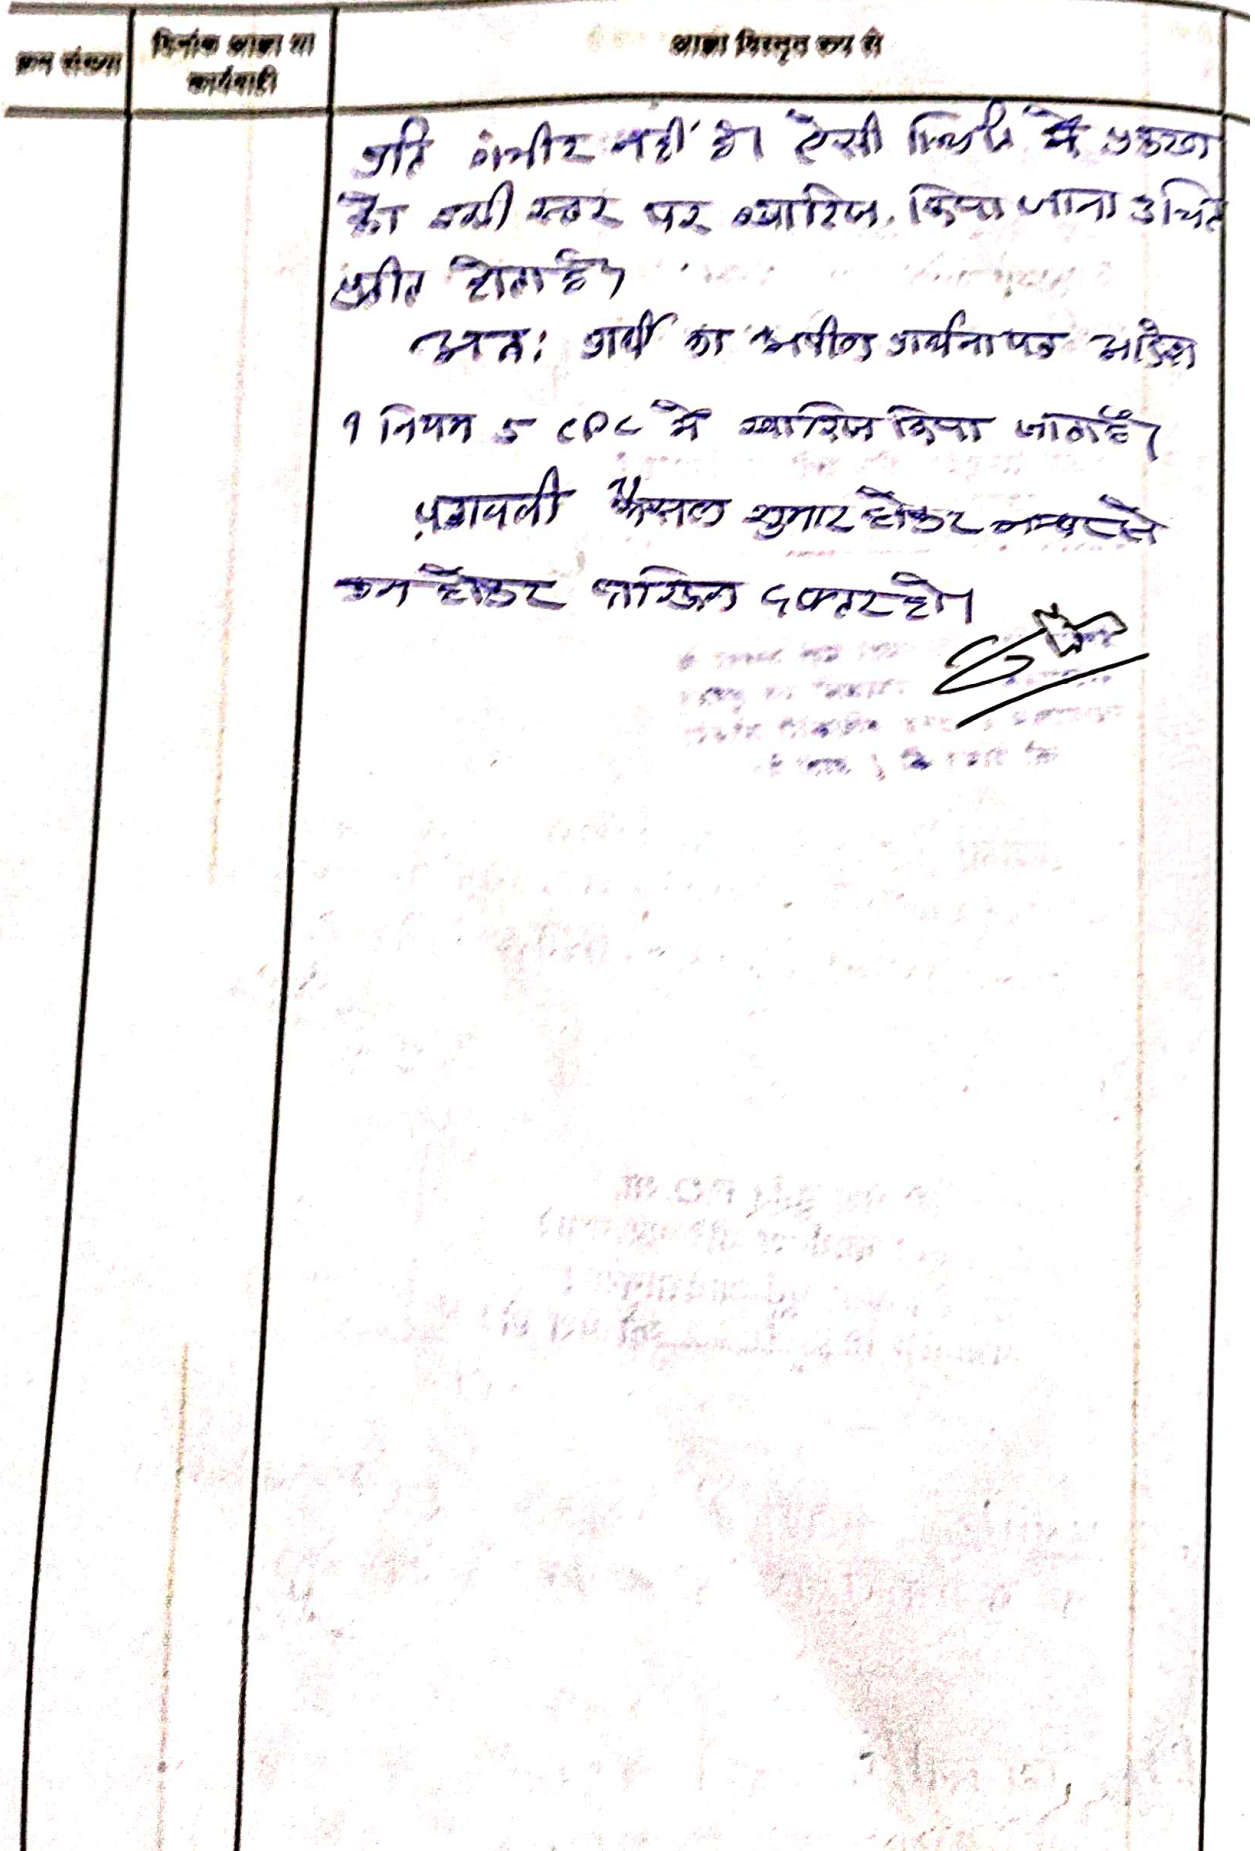 क्रम संख्या
दिनांक आज्ञा या
कार्यवाही
आज्ञा विस्तृत रूप से
प्रति गंभीर नहीं है। ऐसी स्थिति में प्रकरण
को इसी स्तर पर खारिज किया जाना उचित
प्रतीत होता है।
अतः प्रार्थी का प्रार्थना पत्र आदेश
9 नियम 5 CPC में खारिज किया जाता है।
पत्रावली फैसल शुमार होकर नम्बर से
कम होकर दाखिल दफ्तर हो।